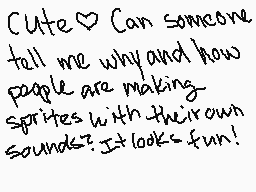 Cute♡ Can someone
tell me why and how
people are making
sprites with their own
sounds? It looks fun!